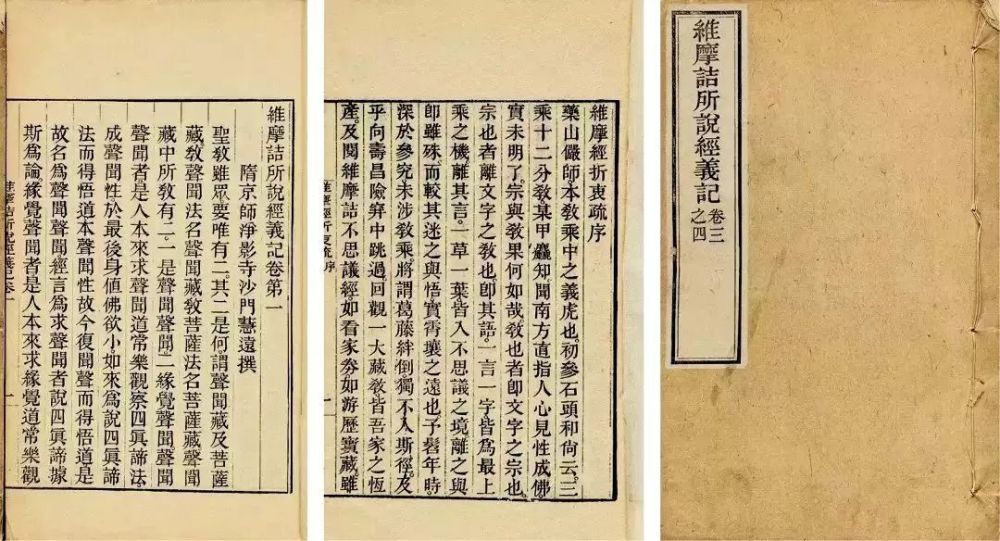 維摩詰所說經義記卷第一
隋京師淨影寺沙門慧遠撰
聖敎雖眾要唯有二。其二是何。謂聲聞藏及菩薩
藏敎聲聞法名聲聞藏敎菩薩法名菩薩藏聲聞
藏中所敎有二。一是聲聞聲聞。二緣覺聲聞聲聞
聲聞者是人本來求聲聞道常樂觀察四眞諦法。
成聲聞性於最後身値佛欲小如來爲說四眞諦
法而得悟道本聲聞性故今復聞聲而得悟道是
故名爲聲聞聲聞經言爲求聲聞者說四眞諦據
斯爲論緣覺聲聞者是人本來求緣覺道常樂觀
維摩詰所說經義記卷一 一
維摩經折衷疏序
藥山儼師本敎乘中之義虎也。初參石頭和尙云。三
乘十二分敎某甲麤知聞南方直指人心見性成佛。
實未明了。宗與敎果何如哉。敎也者卽文字之宗也。
宗也者離文字之敎也。卽其語。一言一字。皆爲最上
乘之機。離其言。一草一葉。皆入不思議之境。離之與
卽雖殊。而較其迷之與悟。實霄壤之遠也。予髫年時。
深於參究。未涉敎乘。將謂葛藤絆倒。獨不入斯徑。及
乎向壽昌險穽中跳過。回觀一大藏敎。皆吾家之恆
產。及閱維摩詰不思議經。如看家劵。如游歷寶藏。雖
維摩經折衷疏序 一
維摩詰所說經義記 卷三之四